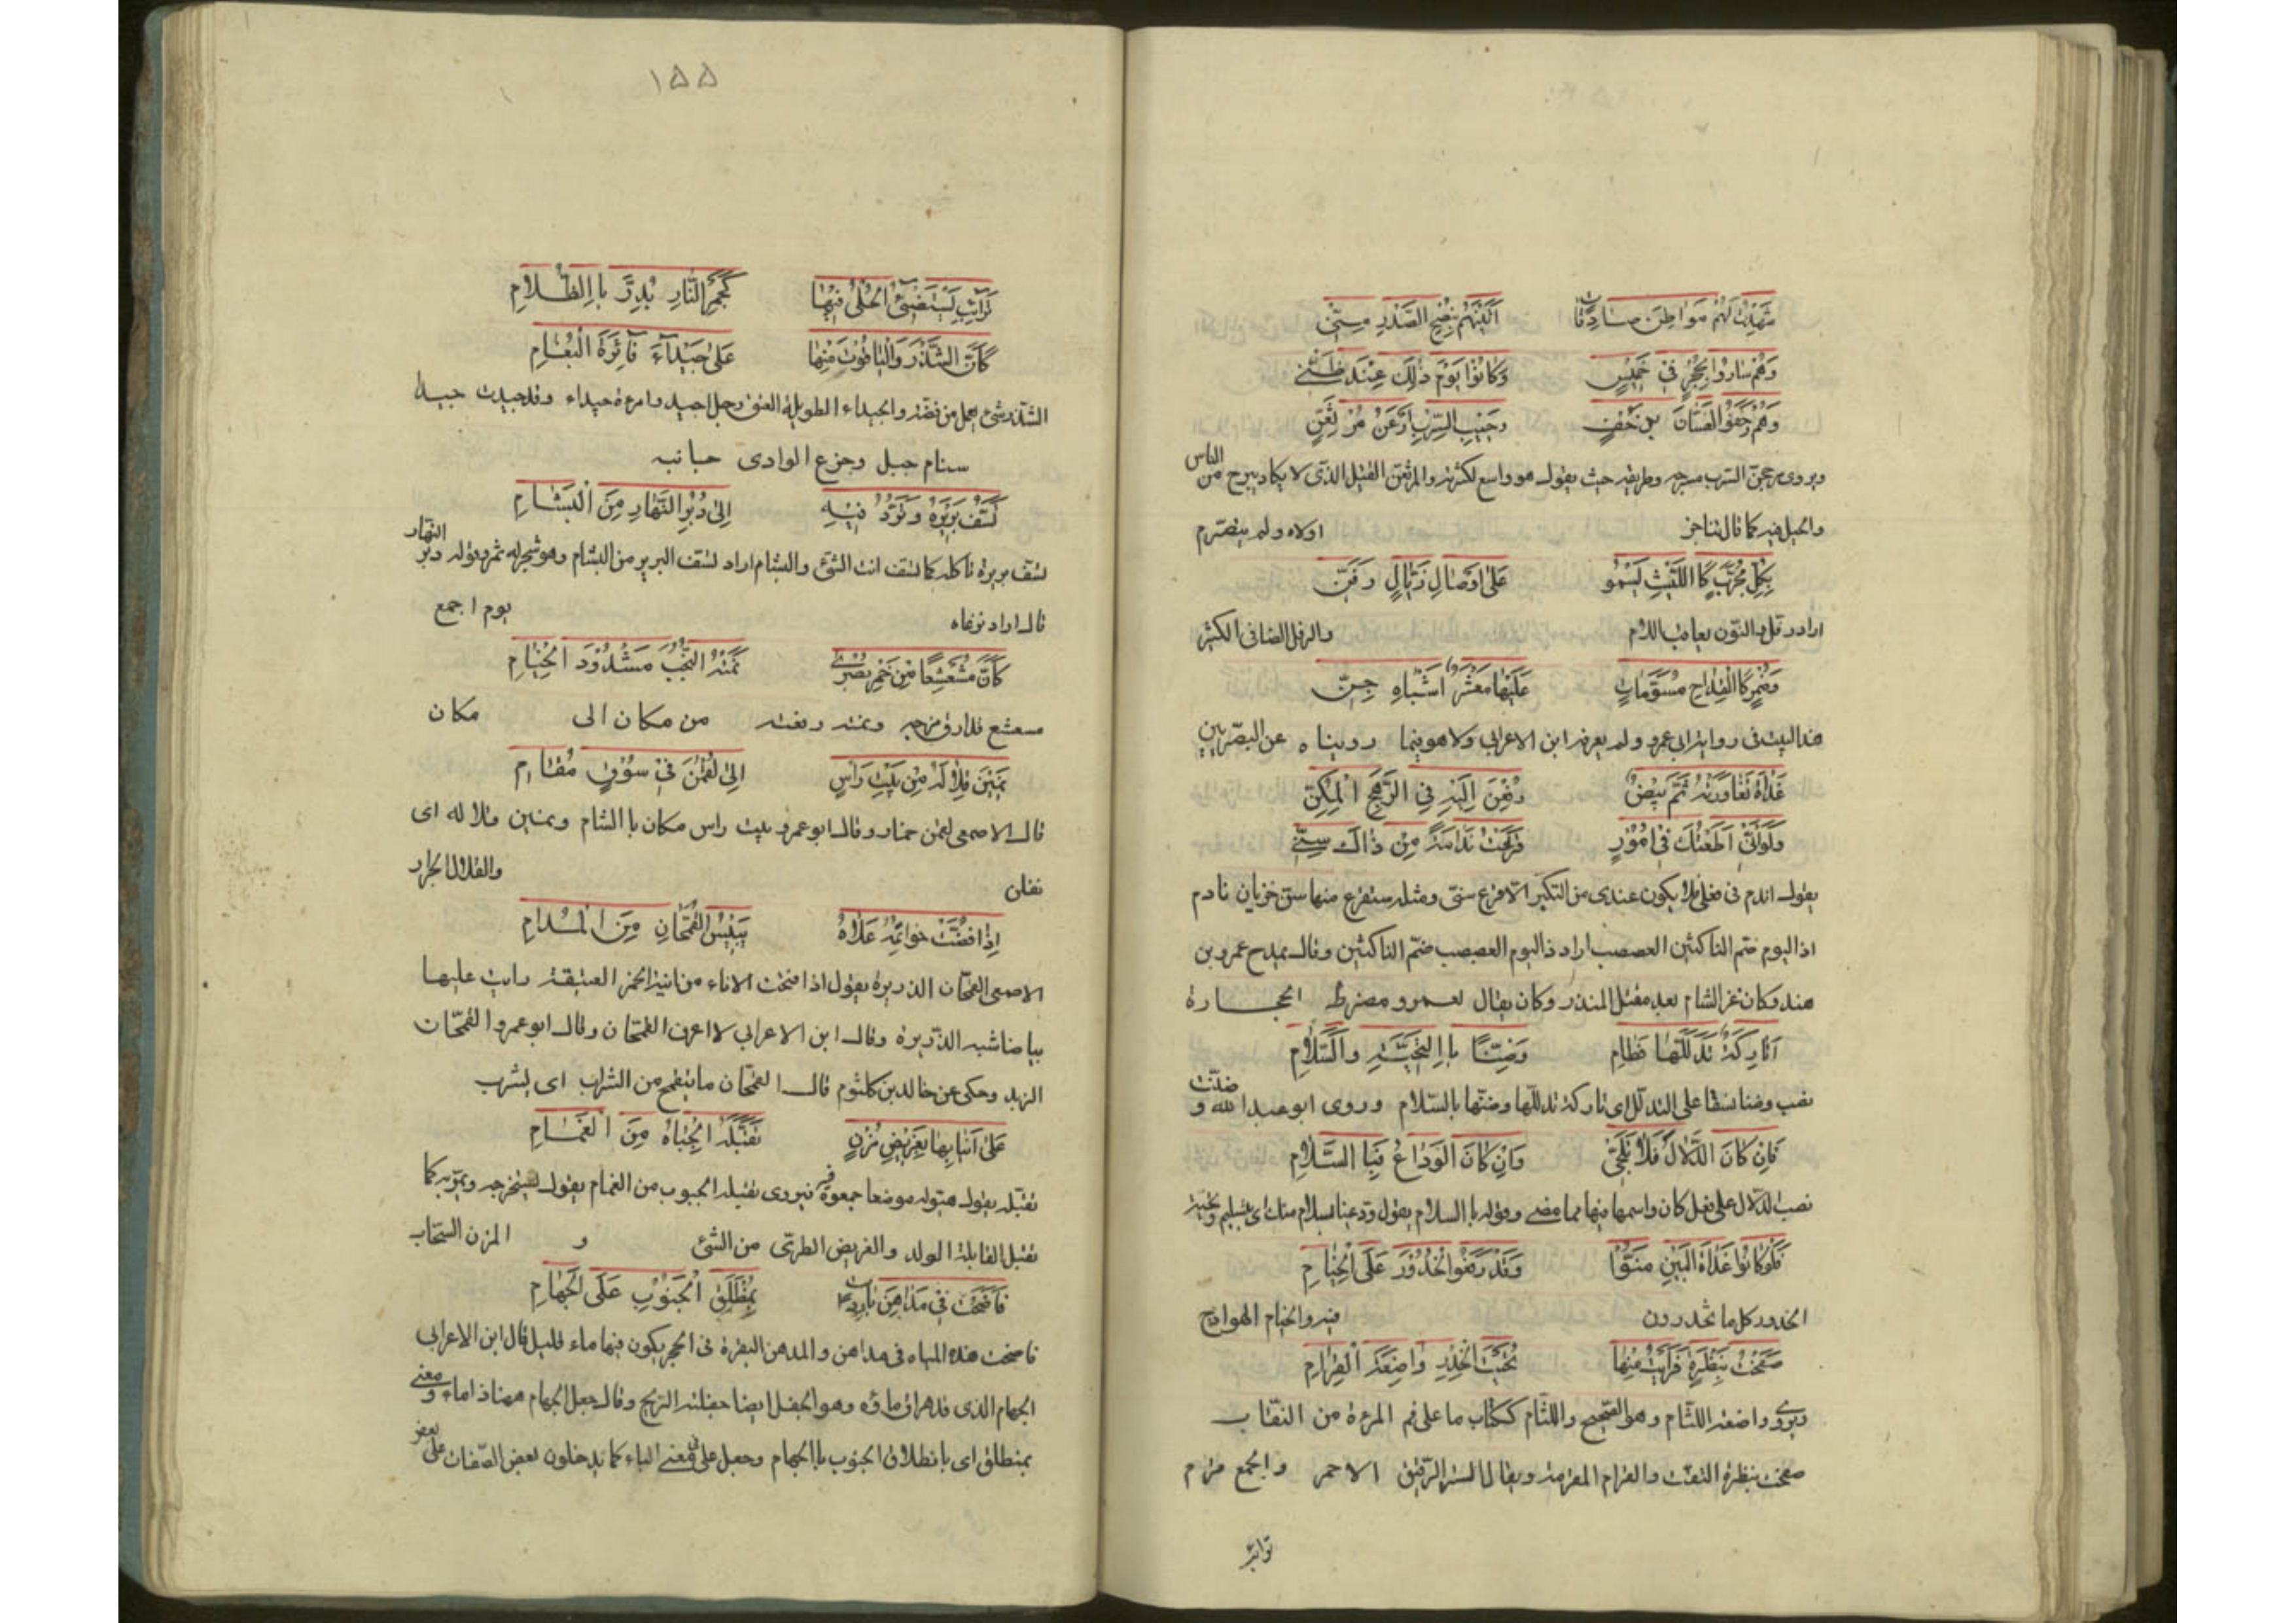 شهدت لهم مواطن صادقات اتيتهم بنصح الصدر مني
وهم ساروا بحجر في خميس وكانوا يوم ذلك عند ظني
وهم زحفوا لغسان بزحف رحيب السرب ارعن مرثعن
ويروى مرجحن السرب مسرحه وطريقه حيث يقول هو واسع لكثرته والمرثعن الثقيل الذي لا يكاد يبرح من الناس
والخيل فيه كما قال اولاه ولم يتصرم
بكل مجرب كاالليث يسمو على اوصال ذيال رفن
اراد رفل والنون يعاقب اللام والرفل الضافي الكثير
وضمر كاالقداح مسومات عليها معشر اشباه جن
هذا البيت في رواية ابي عمرو ولم يعرفه ابن الاعرابي ولا هو فيما رويناه عن البصريين
غداة تعاورته ثم بيض دفعن اليه في الرهج المكن
ولو اني اطعتك في امور قرعت ندامة من ذاك سني
يقول اندم في فعلي فلا يكون عندي من النكير الا قرع سني ومثله ستقرع منها سن خزيان نادم
اذا اليوم ضم الناكثين العصبصب اراد ذا اليوم العصبصب ضم الناكثين وقال يمدح عمرو بن
هند وكان غزا الشام بعد مقتل المنذر وكان يقال لعمرو مضرط الحجارة
اتاركة تدللها قطام وضنا باالتحية والسلام
نصب وضنا نسقا على التدلل اي تاركة تدللها وضنها بالسلام وروى ابو عبد الله وضنت
فان كان الدلال فلا تلجي وان كان الوداع فباالسلام
نصب الدلال على فعل كان واسمها فيها مما مضى وقوله باالسلام يقول ودعينا بسلام منك اي بتسليم وتحية
فلو كانوا غداة البين منوا وقد رفعوا الخدور على الخيام
الخدور كل ما تخدرون فيه والخيام الهوادج
صفحت بنظرة فرايت منها تحيت الخدر واضعة القرام
ويروى واضعة اللثام وهو الصحيح واللثام ككتاب ما على فم المرءة من النقاب
صفحت بنظرة التفت والقرام المقرمة ويقال الستر الرقيق الاحمر والجمع قرم
ترائب
١٥٥
ترائب يستضيئ الحلي فيها كجمر النار بذر باالظلام
كان الشذر والياقوت منها على جيداء فاترة البغام
الشذر شيء يعمل من فضة والجيداء الطويلة العنق رجل اجيد وامرءة جيداء وقد جيدت جيدا
سنام جبل وجزع الوادي جانبه
تسف بريره وترود فيه الى دبر النهار من البشام
تسف بريره تاكله كما تسف انت الشئ والبشام اراد تسف البرير من البشام وهو شجر له ثمر وقوله دبر النهار
قال اراد يوم اجمع
كان مشعشعا من خمر بصرى نمته البخت مشدود الختام
مشعشع قد ارق مزجه ونمته رفعته من مكان الى مكان
نمين قلاله من بيت راس الى لقمن في سوق مقام
قال الاصمعي لقمن خمار وقال ابو عمرو بيت راس مكان باالشام ونمين قلاله اي
نقلن والقلال الجرار
اذا فضت خواتمه علاه يبيس القمحان من المدام
الاصمعي القمحان الذريرة يقول اذا فتحت الاناء من انية الخمر العتيقة رايت عليها
بياضا شبه الذريرة وقال ابن الاعرابي لا اعرف القمحان وقال ابو عمرو القمحان
الزبد وحكى عن خالد بن كلثوم قال القمحان ما يتقمح من الشراب اي يشرب
على انيابها بغريض مزن تقبله الجباة من الغمام
تقبله يقول قبوله موضعا جمعوه فيه ويروى تقبله الجبوب من الغمام يقول
تقبل القابلة الولد والغريض الطري من الشئ و المزن السحاب
فاضحت في مداهن باردات بمنطلق الجنوب على الجهام
فاضحت هذه المياه في مداهن والمدهن النقرة في الحجر يكون فيها ماء قليل قال ابن الاعرابي
الجهام الذي قد هراق ماؤه وهو الجفل ايضا جفلته الريح وقال جعل الجهام ههنا ذا ماء ومعنى
بمنطلق اي بانطلاق الجنوب باالجهام وجعل على في معنى الباء كما يدخلون بعض الصفات على بعض